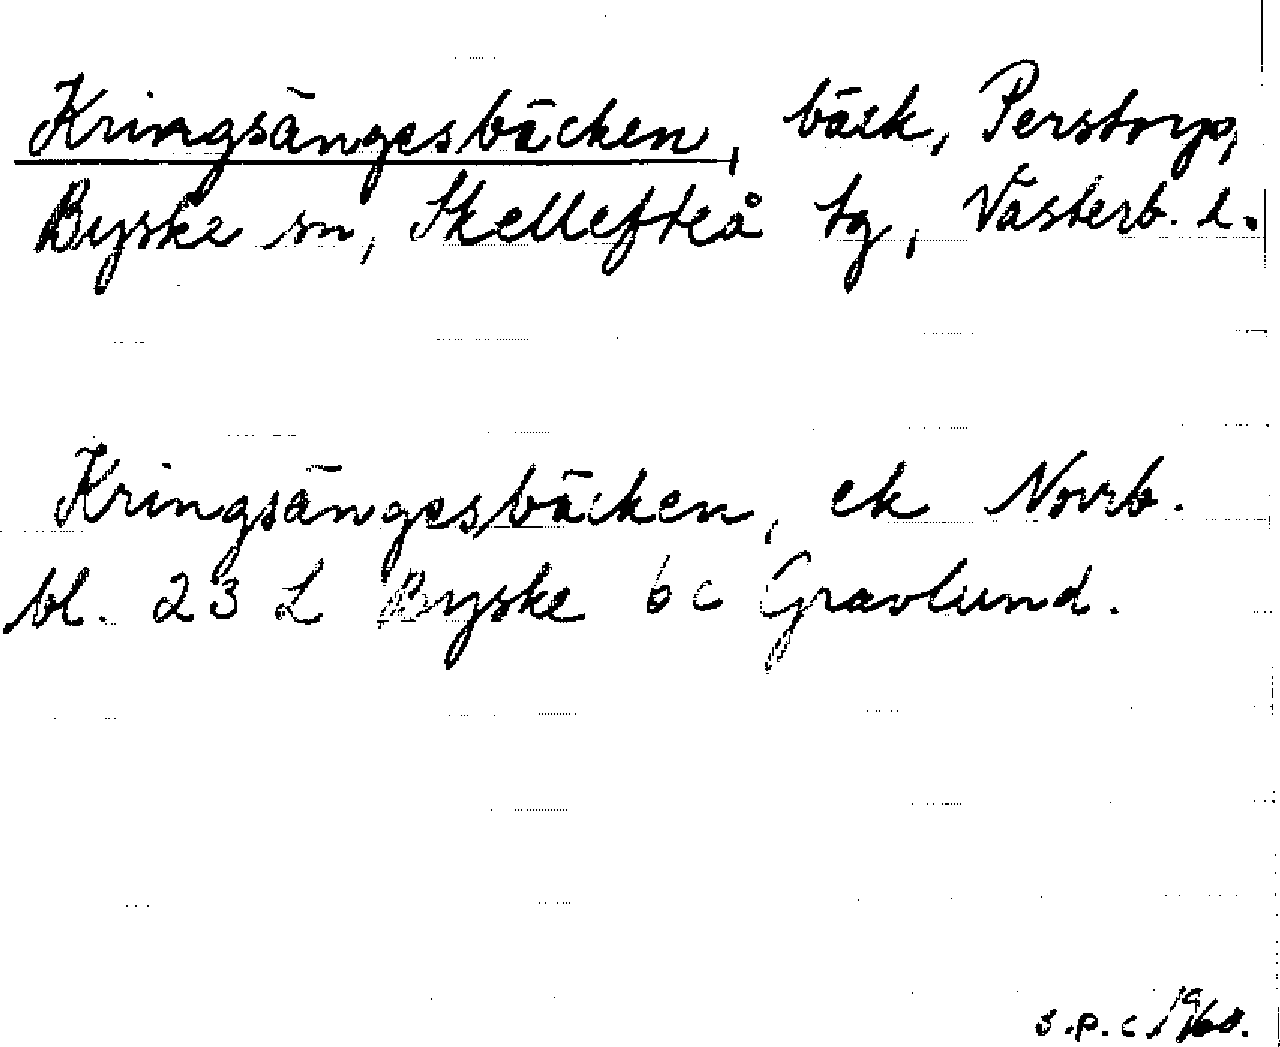 Kringsängesbäcken, bäck, Perstorp,
Byske sn, Skellefteå tg, Västerb. l.
Kringsängesbäcken, ek Norrb.
bl. 23 L Byske 6 c Gravlund.
s.p.c 1960.